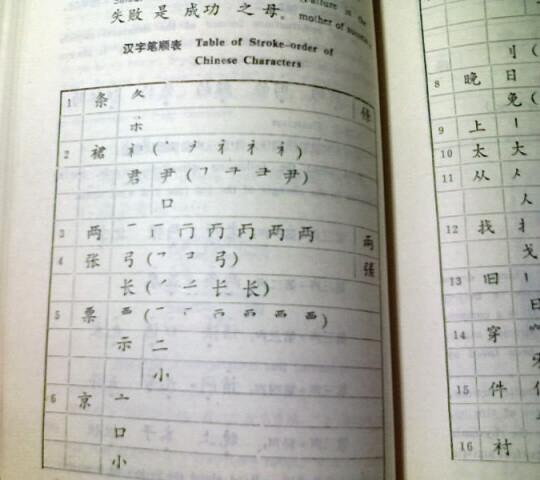 Failure is the
失败 是 成功 之 母。 mother of success
汉字笔顺表 Table of Stroke-order of
Chinese Characters
1 条 夂 條
朩
2 裙 衤(丶 衤 衤 衤)
君 尹(㇕ 尹)
口
3 两 一 丆 冂 丙 丙 两 两 兩
4 张 弓(㇕ コ 弓) 張
长(ノ 长 长)
5 票 覀(一 覀)
示 二
小
6 京 亠
口
小
刂(
8 晚 日
免(
9 上 丨
10 太 大
11 从 人
人
12 找 扌
戈
13 旧 丨
日
14 穿
牙
15 件 亻
16 衬